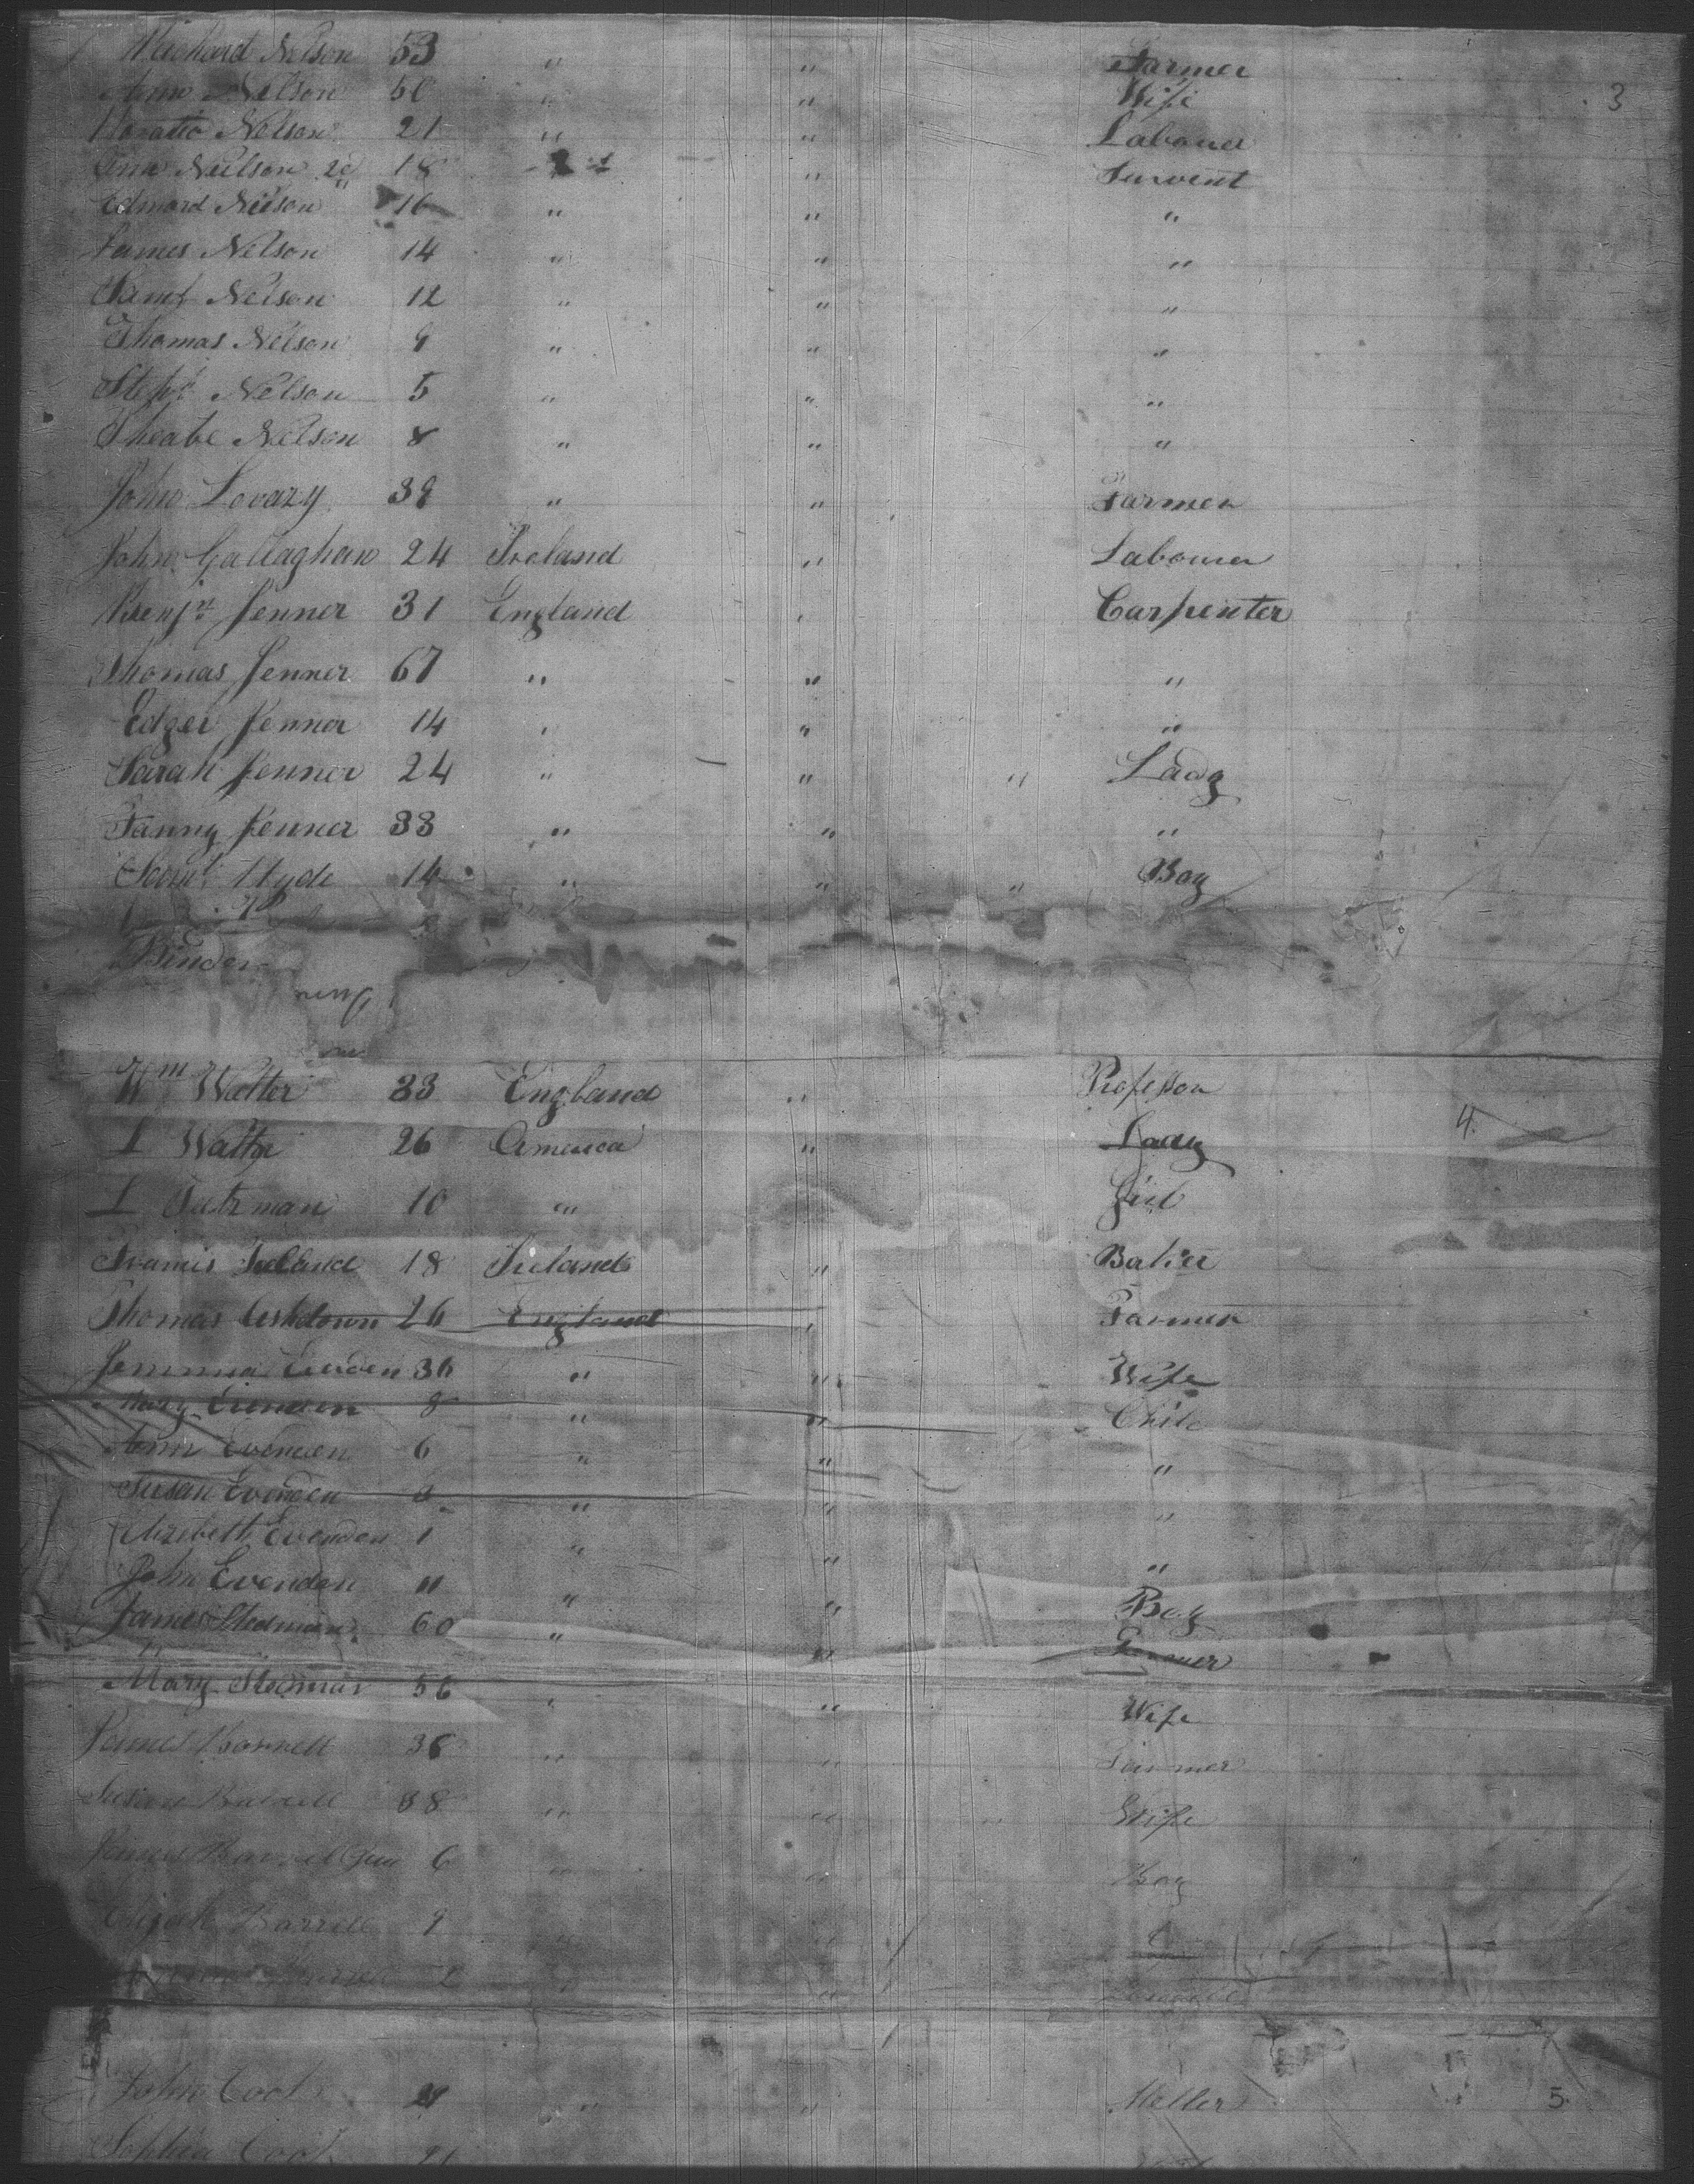 Nelson 53 " " Farmer
Nelson 50 " " Wife 3
Horatio Nelson 21 " " Labouer
Ann Neilson 2d 18 " Survent
Edmard Nelson 16 " " "
James Nelson 14 " " "
Saml Nelson 12 " " "
Thomas Nelson 9 " " "
Stepn Nelson 5 " " "
Pheabe Nelson 8 " " "
John Lovazy 39 " " Farmer
John Gallaghan 24 Ireland " Labouer
Benjn Jenner 31 England " Carpenter
Thomas Jenner 67 " " "
Edger Jenner 14 " " "
Sarah Jenner 24 " " " Lady
Fanny Jenner 33 " " "
Saml Hyde 14 " " " Boy
Binder
Wm Walter 33 England " Professor
L Walter 26 America " Lady 4.
L 10 " Girl
Francis Ireland 18 Ireland " Baker
Thomas Ashdown 26 England " Farmer
Jemmia Evenden 36 " " Wife
Mary Evenden 8 " " Child
Ann Evenden 6 " " "
Susan Evenden " " "
Elizebeth Evenden 1 " " "
John Evenden 11 " " Boy
James Stedman 60 " " Farmer
Mary Stedman 56 " " Wife
James Barrell 36 " " Farmer
Susan Barrell 38 " " Wife
James Barrell Jun 6 " " Boy
Elijah Barrell 9 " "
Barrell 2 " "
John Cook 21 " " Meller 5.
Sophia Cook 21